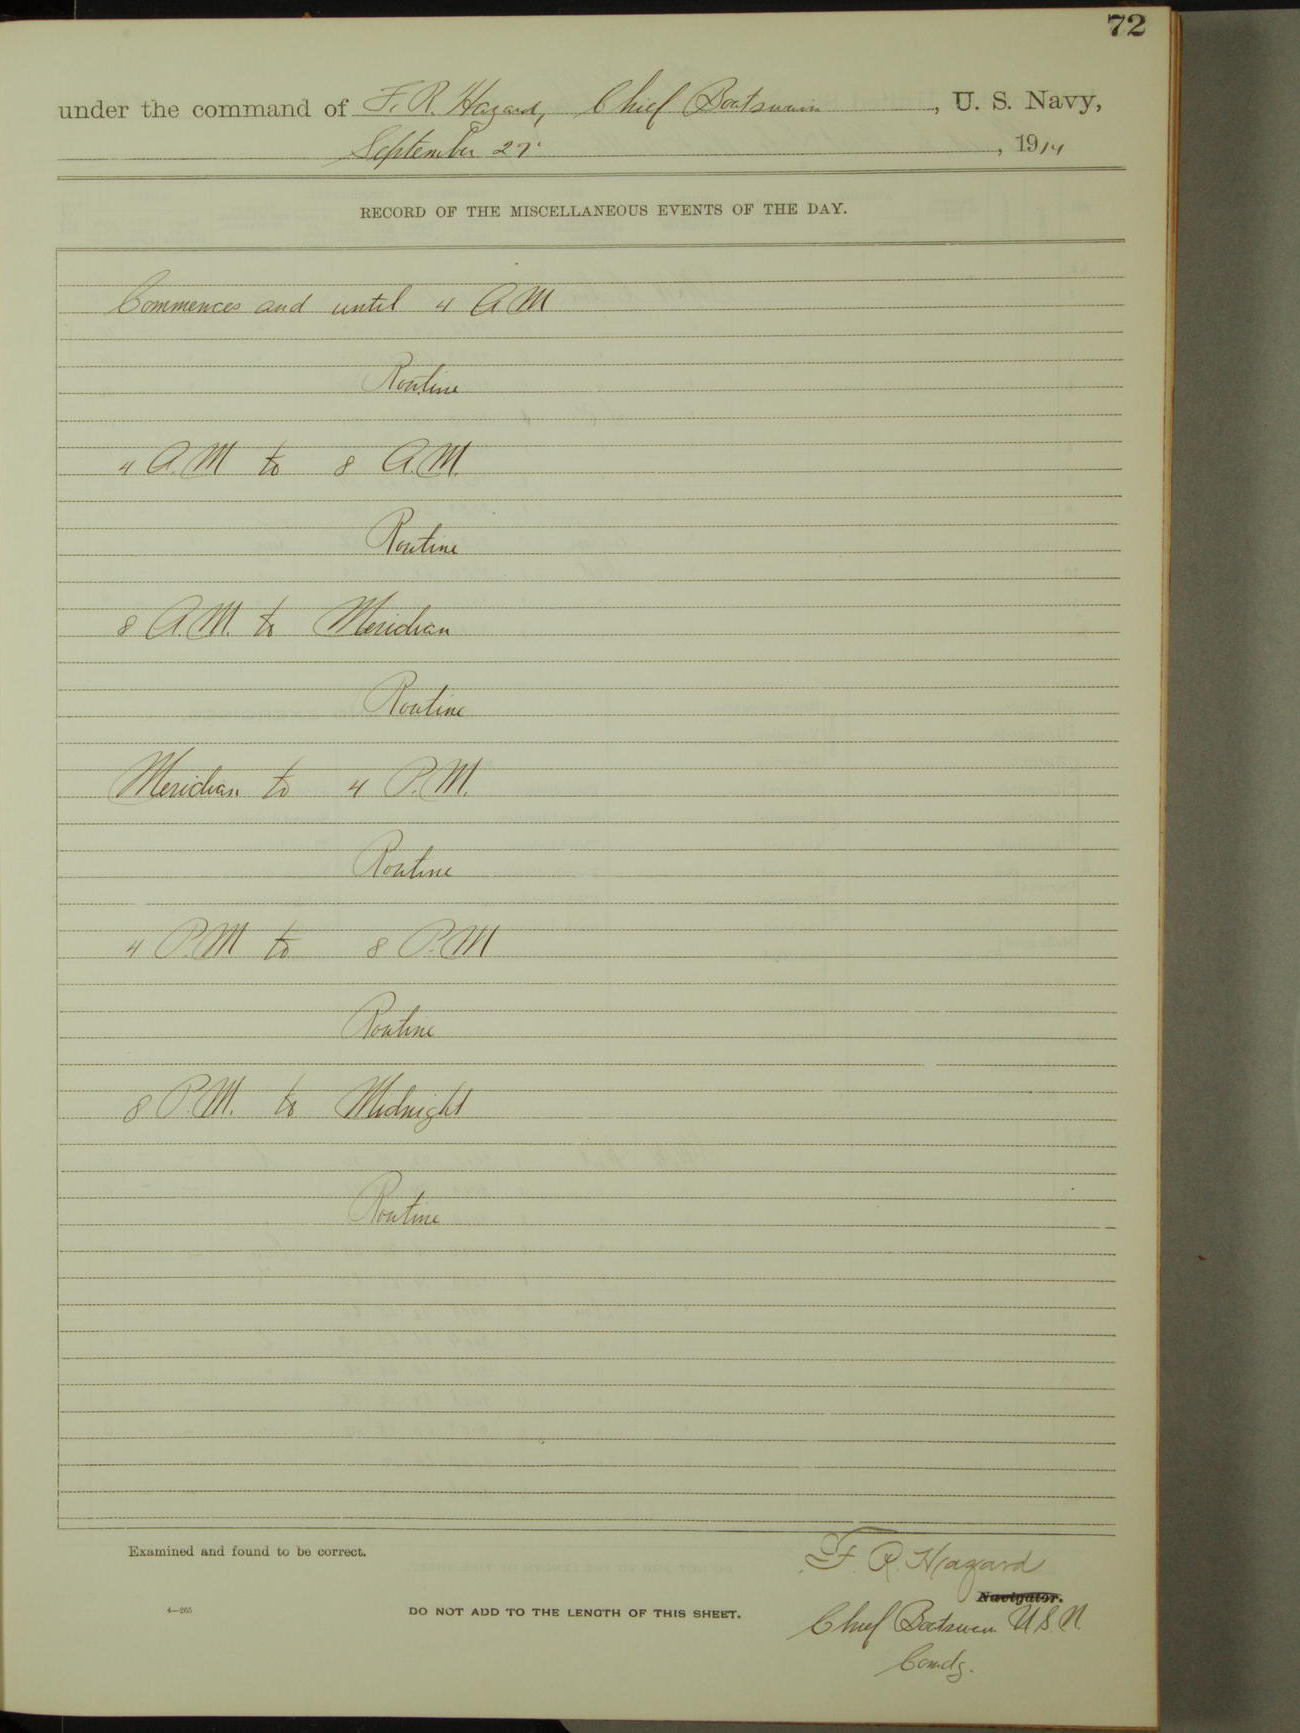 72
under the command of F. R. Hazard, Chief Boatswain, U. S. Navy,
September 27, 1914
RECORD OF THE MISCELLANEOUS EVENTS OF THE DAY.
Commences and until 4 A M
Routine
4 A.M to 8 A.M.
Routine
8 A.M. to Meridian
Routine
Meridian to 4 P.M.
Routine
4 P.M to 8 P.M
Routine
8 P.M. to Midnight
Routine
Examined and found to be correct.
F. R. Hazard
Navigator.
4—265
DO NOT ADD TO THE LENGTH OF THIS SHEET.
Chief Boatswain U.S.N.
Comdg.